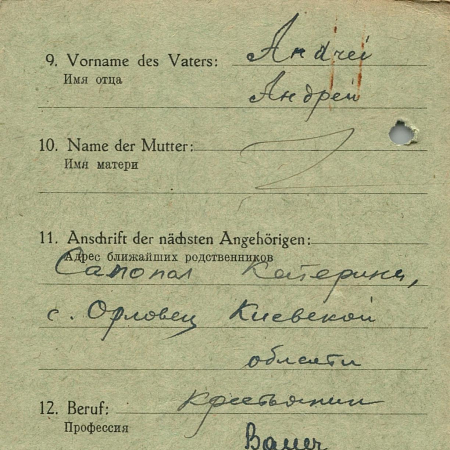 9. Vorname des Vaters: Andrei
Имя отца
Андрей
10. Name der Mutter:
Имя матери
11. Anschrift der nächsten Angehörigen:
Адрес ближайших родственников
Сапопал Катерина,
с. Орловец Киевской
области
12. Beruf: Крестьянин
Профессия
Bauer